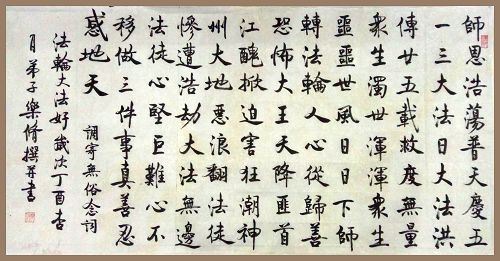 師恩浩蕩普天慶五
一三大法日大法洪
傳廿五載救度無量
眾生濁世渾渾眾生
噩噩世風日日下師
轉法輪人心從歸善
恐怖大王天降匪首
江醜掀迫害狂潮神
州大地惡浪翻法徒
慘遭浩劫大法無邊
法徒心堅巨難心不
移做三件事真善忍
感地天
調寄無俗念詞
法輪大法好歲次丁酉杏
月弟子樂脩撰并書